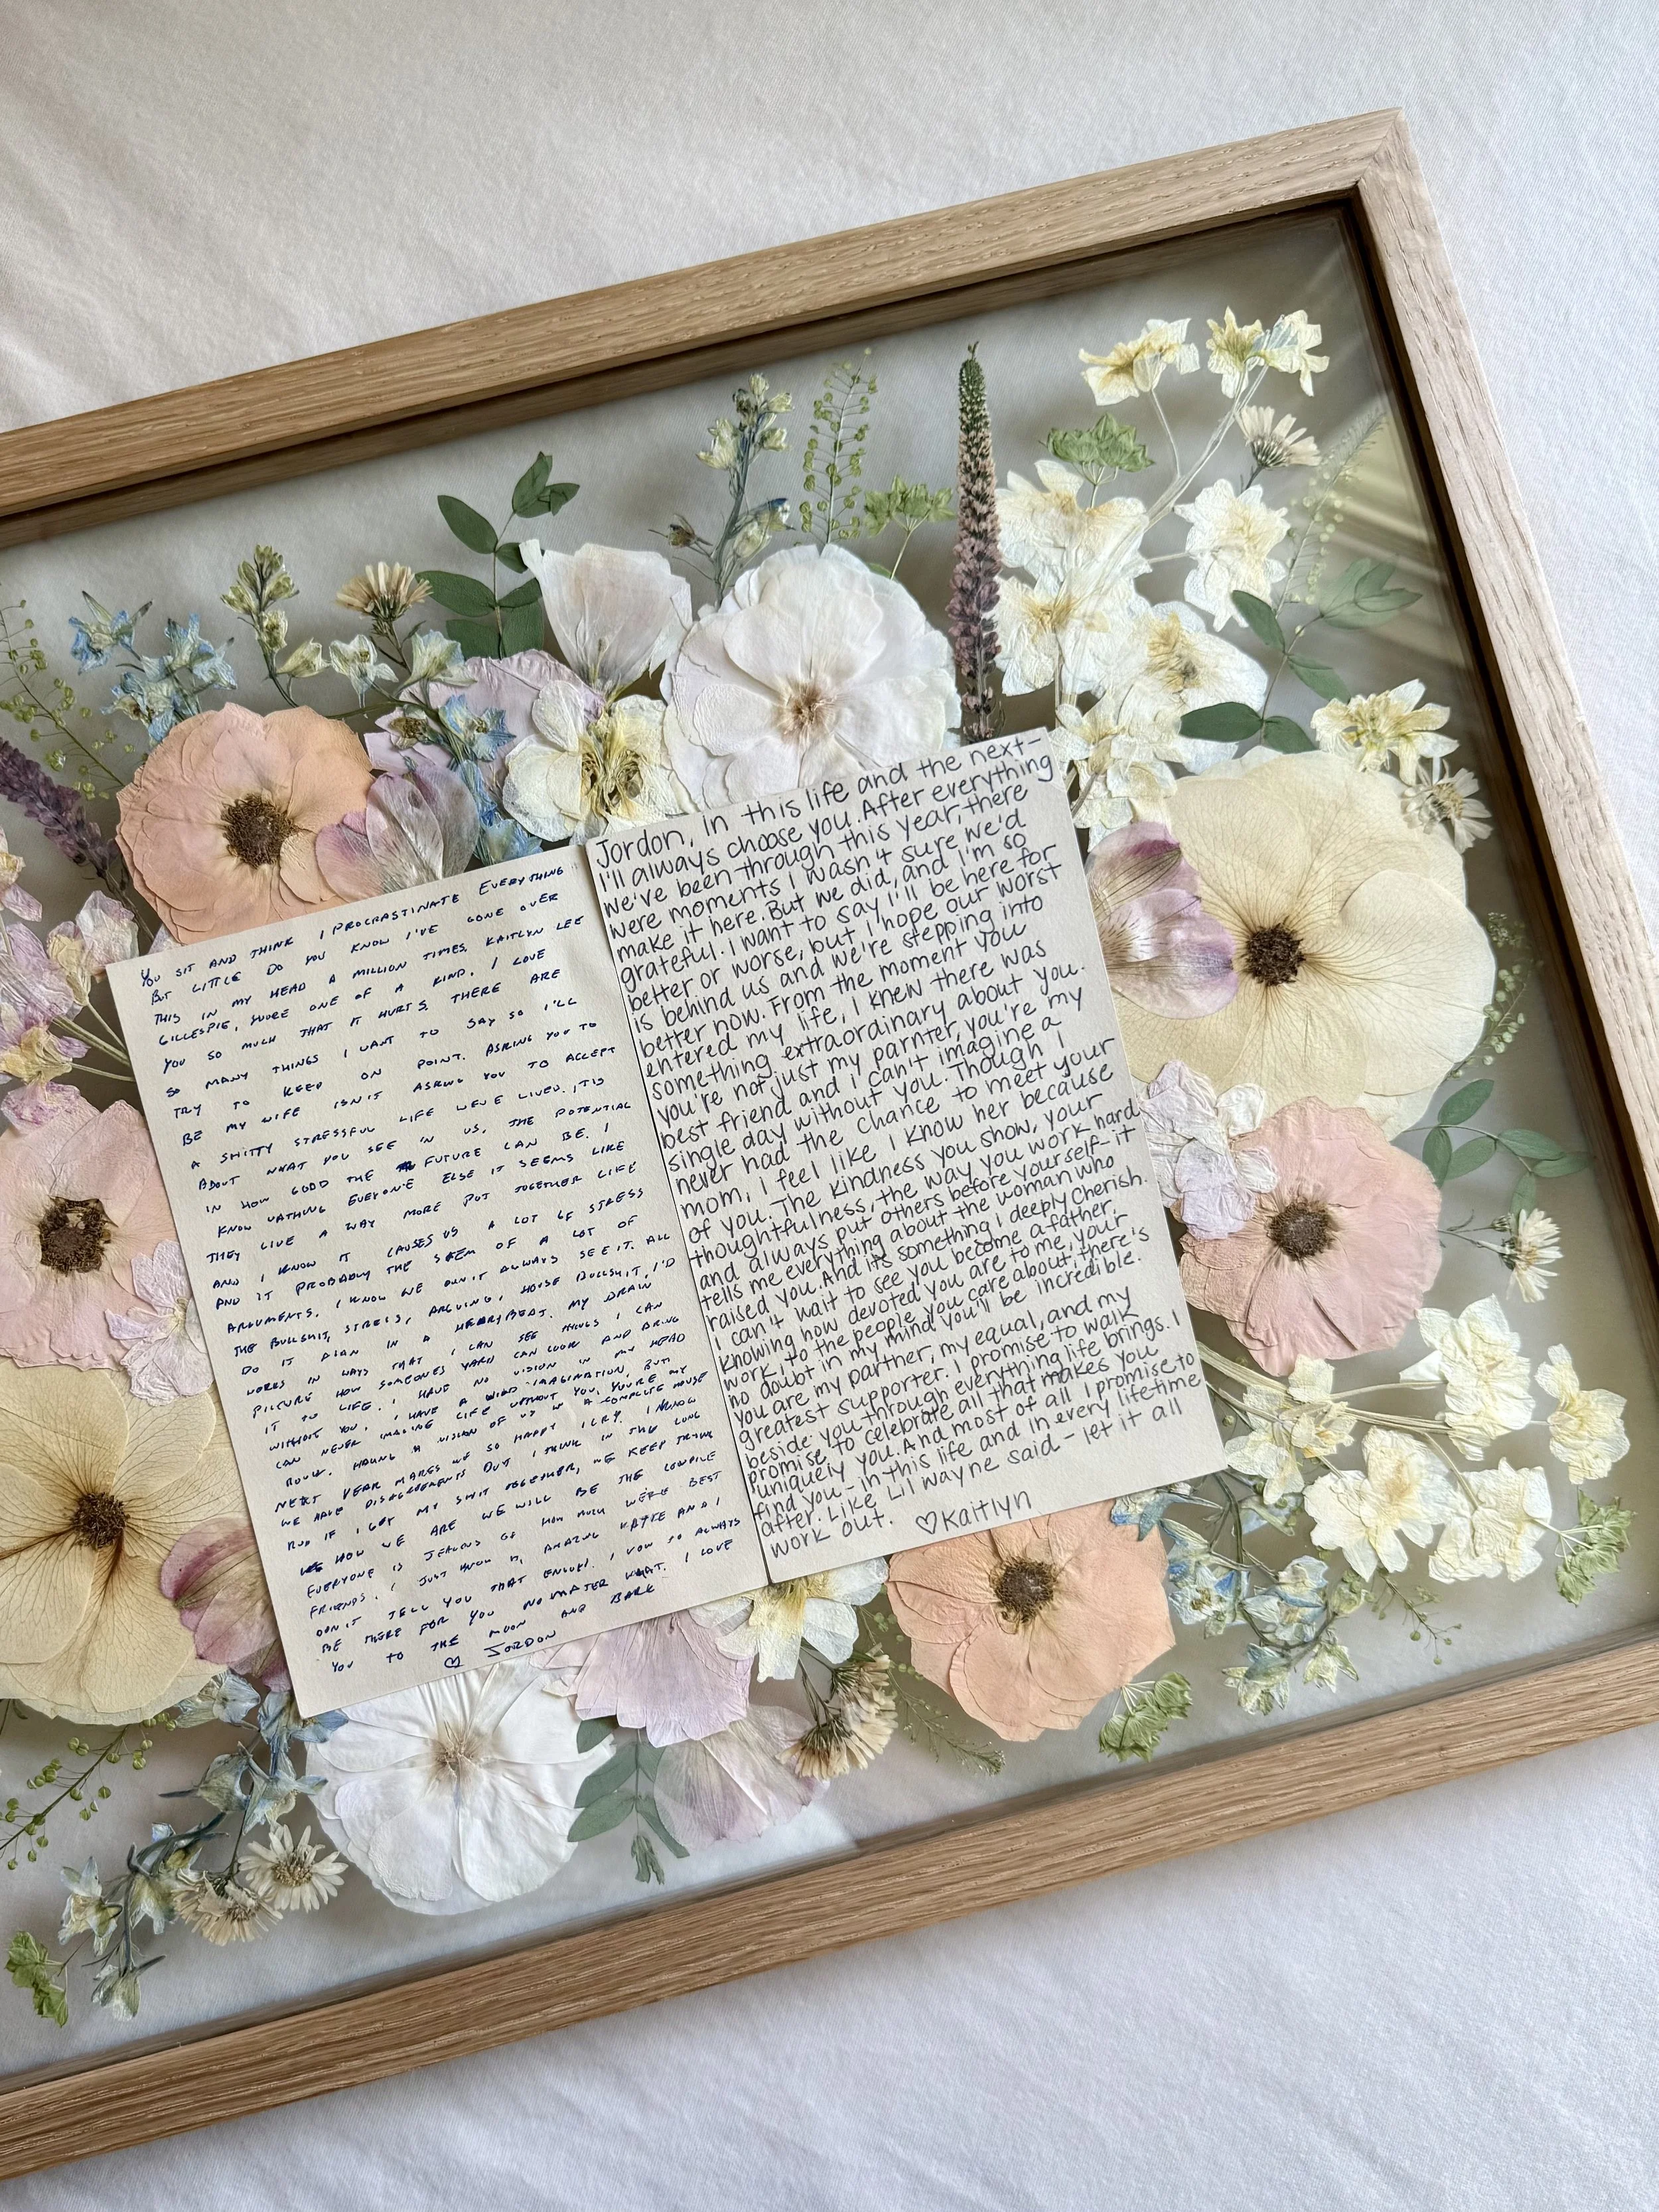 You SIT AND THINK I PROCRASTINATE EVERYTHING
BUT LITTLE DO YOU KNOW I'VE GONE OVER
THIS IN MY HEAD A MILLION TIMES. KAITLYN LEE
GILLESPIE, YOURE ONE OF A KIND. I LOVE
YOU SO MUCH THAT IT HURTS. THERE ARE
SO MANY THINGS I WANT TO SAY SO I'LL
TRY TO KEEP ON POINT. ASKING YOU TO
BE MY WIFE ISN'T ASKING YOU TO ACCEPT
A SHITTY STRESSFUL LIFE WEVE LIVED. ITS
ABOUT WHAT YOU SEE IN US. THE POTENTIAL
IN HOW GOOD THE FUTURE CAN BE. I
KNOW EVERYONE ELSE IT SEEMS LIKE
THEY LIVE A WAY MORE PUT TOGETHER LIFE
AND I KNOW IT CAUSES US A LOT OF STRESS
AND IT PROBABLY THE STEM OF A LOT OF
ARGUMENTS. I KNOW WE DON'T ALWAYS SEE IT. ALL
THE BULLSHIT, STRESS, ARGUING, HOUSE BULLSHIT, I'D
DO IT AGAIN IN A HEARTBEAT. MY BRAIN
WORKS IN WAYS THAT I CAN SEE THINGS I CAN
PICTURE HOW SOMEONES YARD CAN LOOK AND BRING
IT TO LIFE. I HAVE NO VISION IN MY HEAD
WITHOUT YOU, I HAVE A WILD IMAGINATION, BUT
CAN NEVER IMAGINE LIFE WITHOUT YOU, YOU'RE MY
ROCK. HAVING A VISION OF US IN A COMPLETE HOUSE
NEXT YEAR MAKES ME SO HAPPY I CRY. I KNOW
WE HAVE DISAGREEMENTS BUT I THINK IN THE LONG
RUN IF I GET MY SHIT TOGETHER, WE KEEP TRYING
HOW WE ARE WE WILL BE THE COUPLE
EVERYONE IS JEALOUS OF HOW MUCH WE'RE BEST
FRIENDS. I JUST AMAZING KATIE AND I
DON'T TELL YOU THAT ENOUGH. I VOW TO ALWAYS
BE THERE FOR YOU NO MATER WHAT. I LOVE
YOU TO THE MOON AND BACK
♡ JORDON
Jordon, in this life and the next-
I'll always choose you. After everything
we've been through this year, there
were moments I wasn't sure we'd
make it here. But we did, and I'm so
grateful. I want to say I'll be here for
better or worse, but I hope our worst
is behind us and we're stepping into
better now. From the moment you
entered my life, I knew there was
something extraordinary about you.
you're not just my parnter, you're my
best friend and i can't imagine a
single day without you. Though I
never had the chance to meet your
mom, i feel like I know her because
of you. The kindness you show, your
thoughtfulness, the way you work hard
and always put others before yourself-it
tells me everything about the woman who
raised you. And it's something I deeply cherish.
I can't wait to see you become a father.
Knowing how devoted you are to me, your
work, to the people you care about, there's
no doubt in my mind you'll be incredible.
You are my partner, my equal, and my
greatest supporter. I promise to walk
beside you through everything life brings. I
promise to celebrate all that makes you
uniquely you. And most of all I promise to
find you-in this life and in every lifetime
after. Like Lil Wayne said-let it all
work out. ♡Kaitlyn